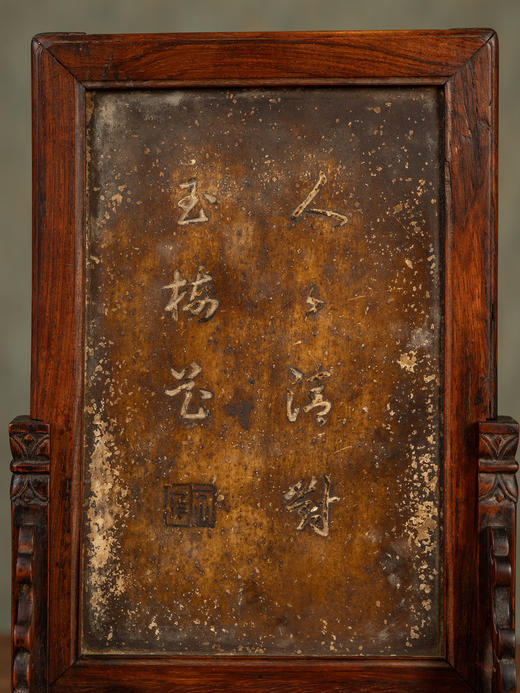 人〻清對
玉梅花